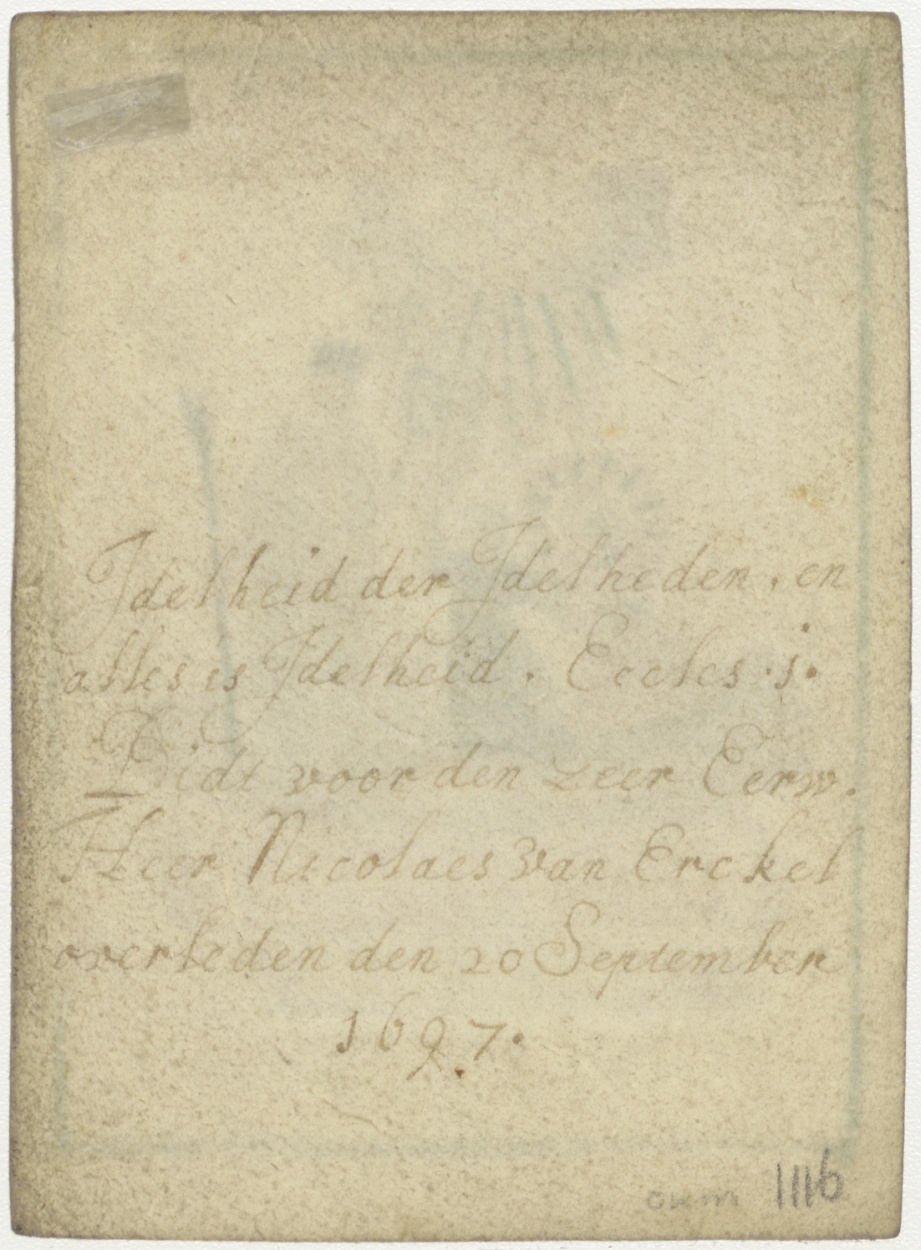 Jdelheid der Jdelheden, en
alles is Jdelheid. Eccles. j.
Bidt voor den zeer Eerw.
Heer Nicolaes van Erckel
overleden den 20 September
1697.
1116